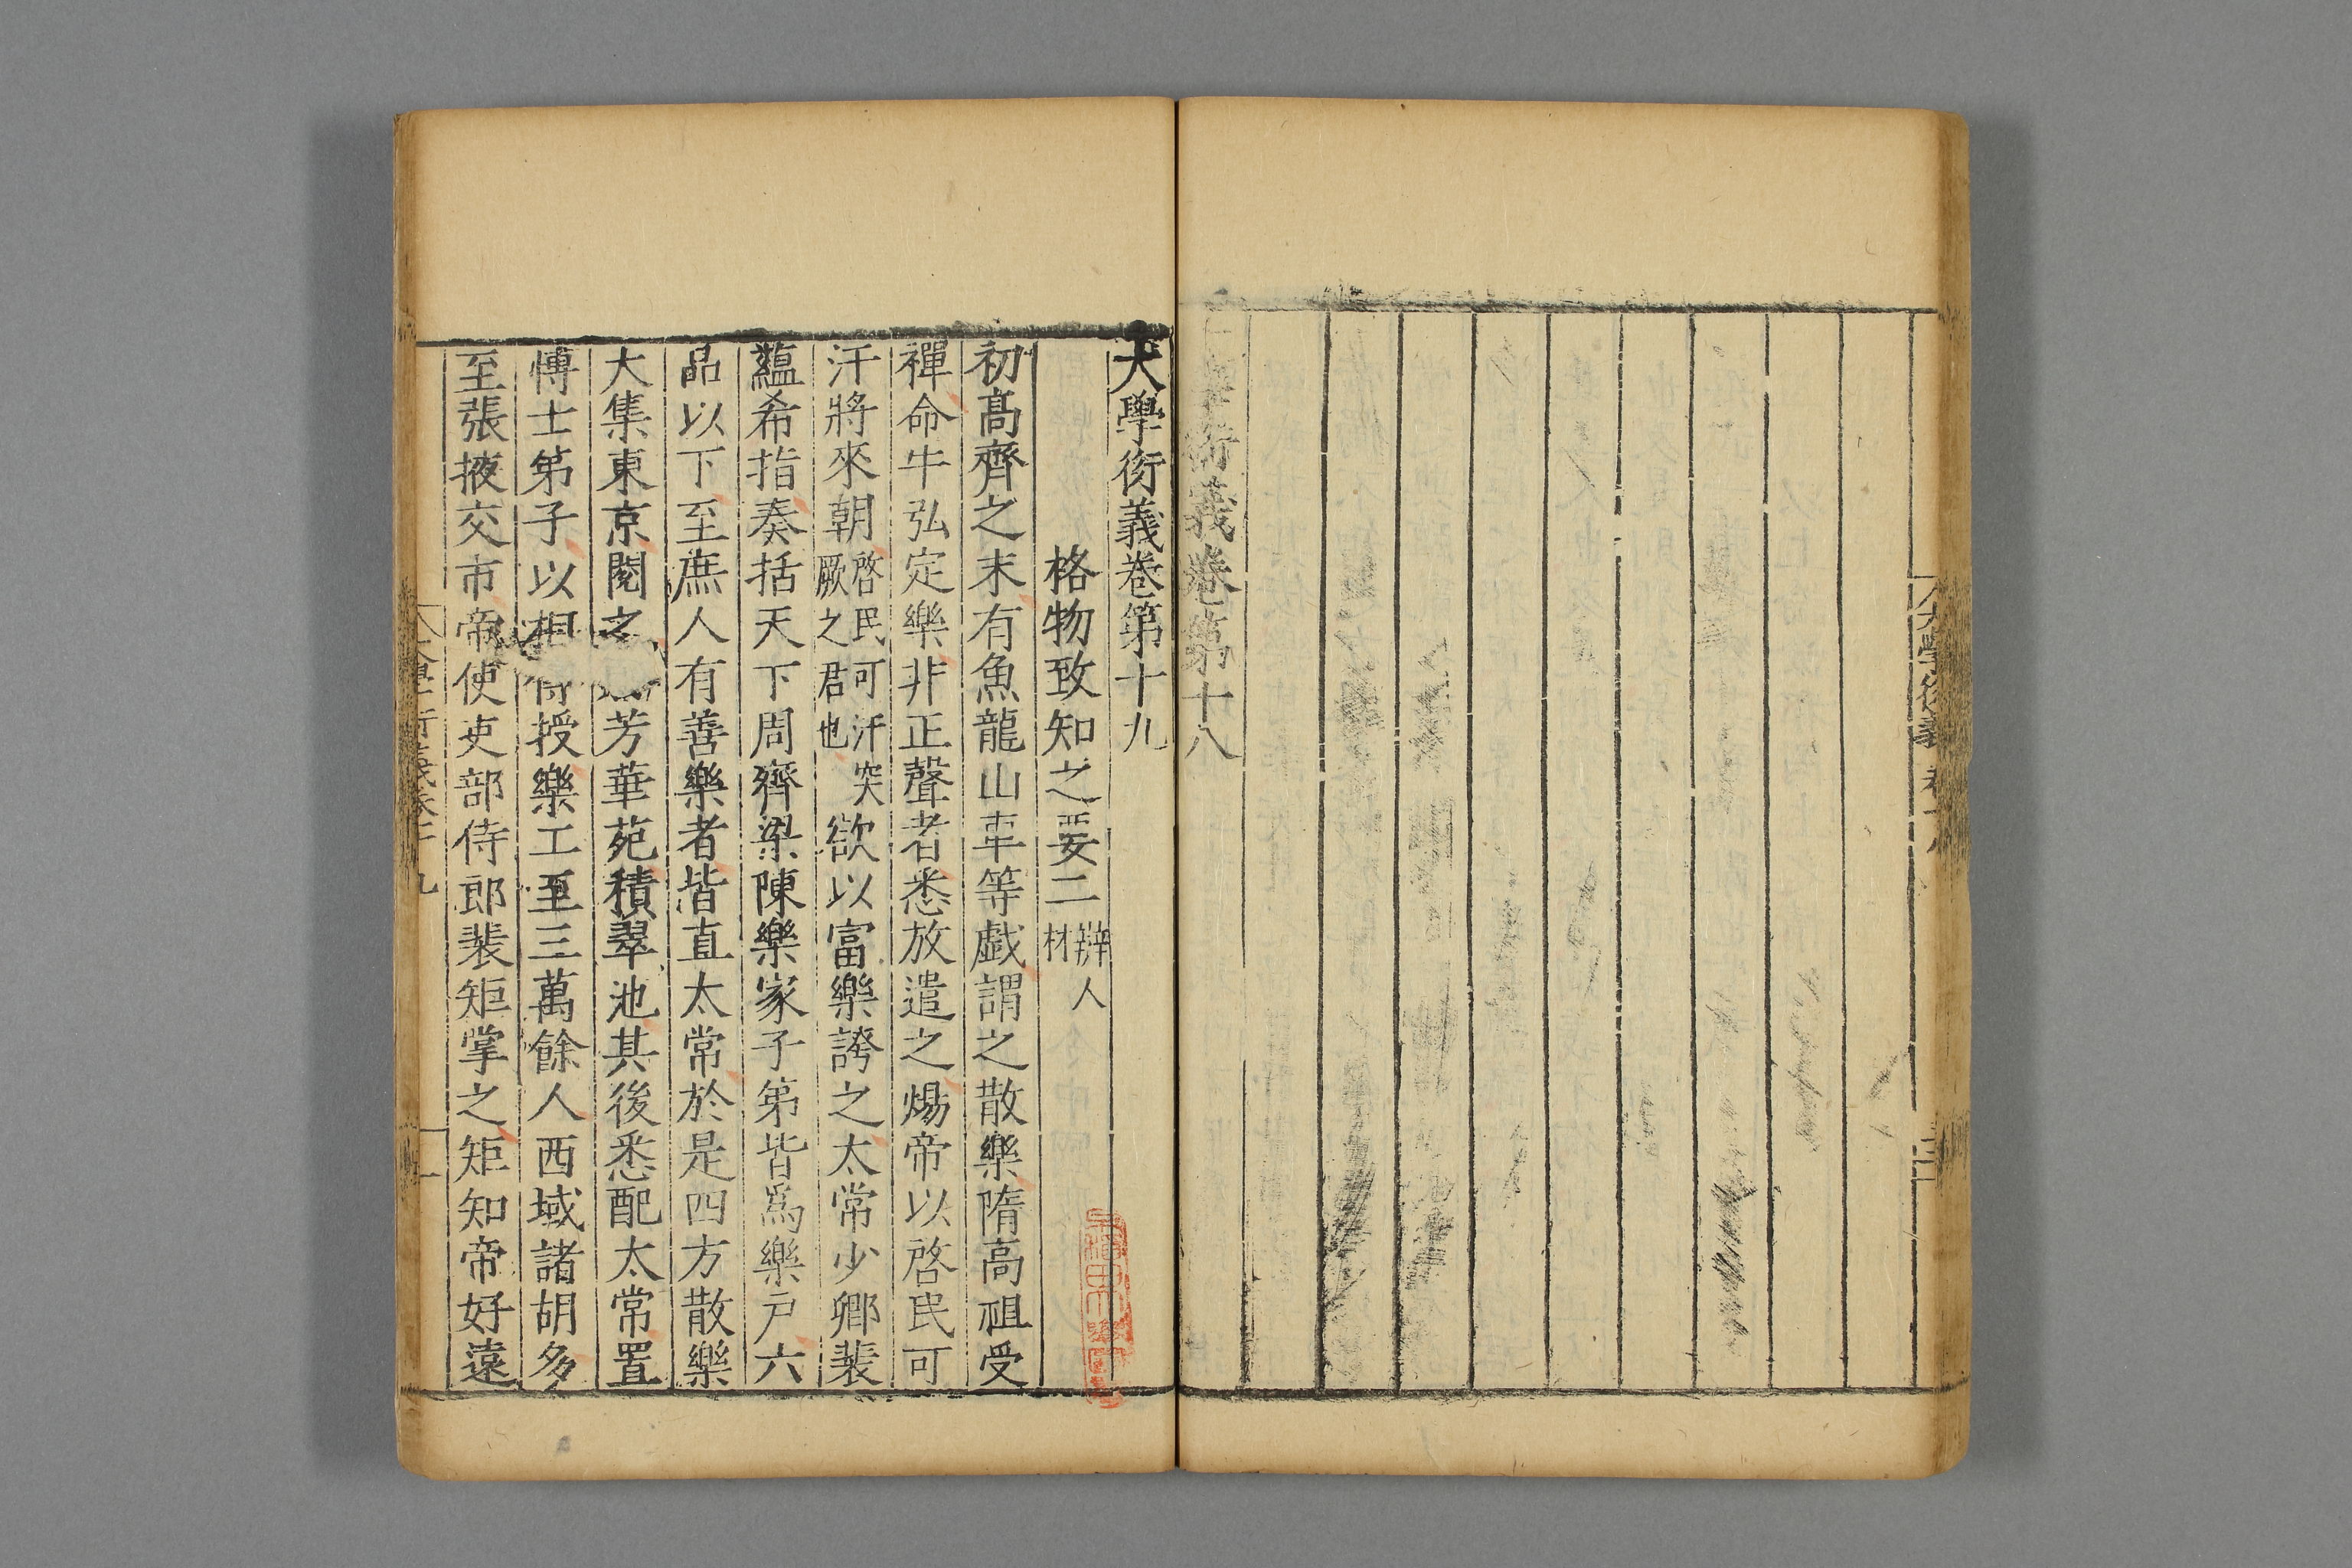 大學衍義卷第十八
大學衍義卷第十九
格物致知之要二 辯人材
初髙齊之末有魚龍山車等戲謂之散樂隋高祖受
禪命牛弘定樂非正聲者悉放遣之煬帝以啓民可
汗將來朝啓民可汗突厥之君也欲以富樂誇之太常少卿裴
蘊希指奏括天下周齊梁陳樂家子弟皆爲樂戶六
品以下至庶人有善樂者皆直太常於是四方散樂
大集東京閱之芳華苑積翠池其後悉配太常置
博士弟子以相授樂工至三萬餘人西域諸胡多
至張掖交市帝使吏部侍郎裴矩掌之矩知帝好遠